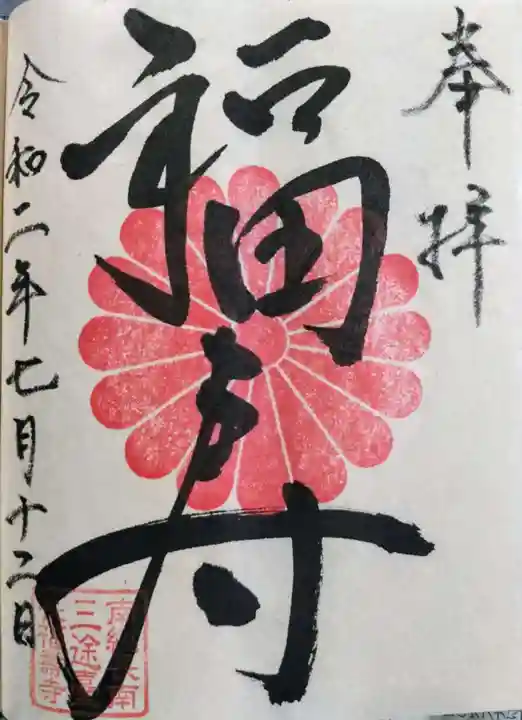 奉拝
福寿
令和二年七月十二日